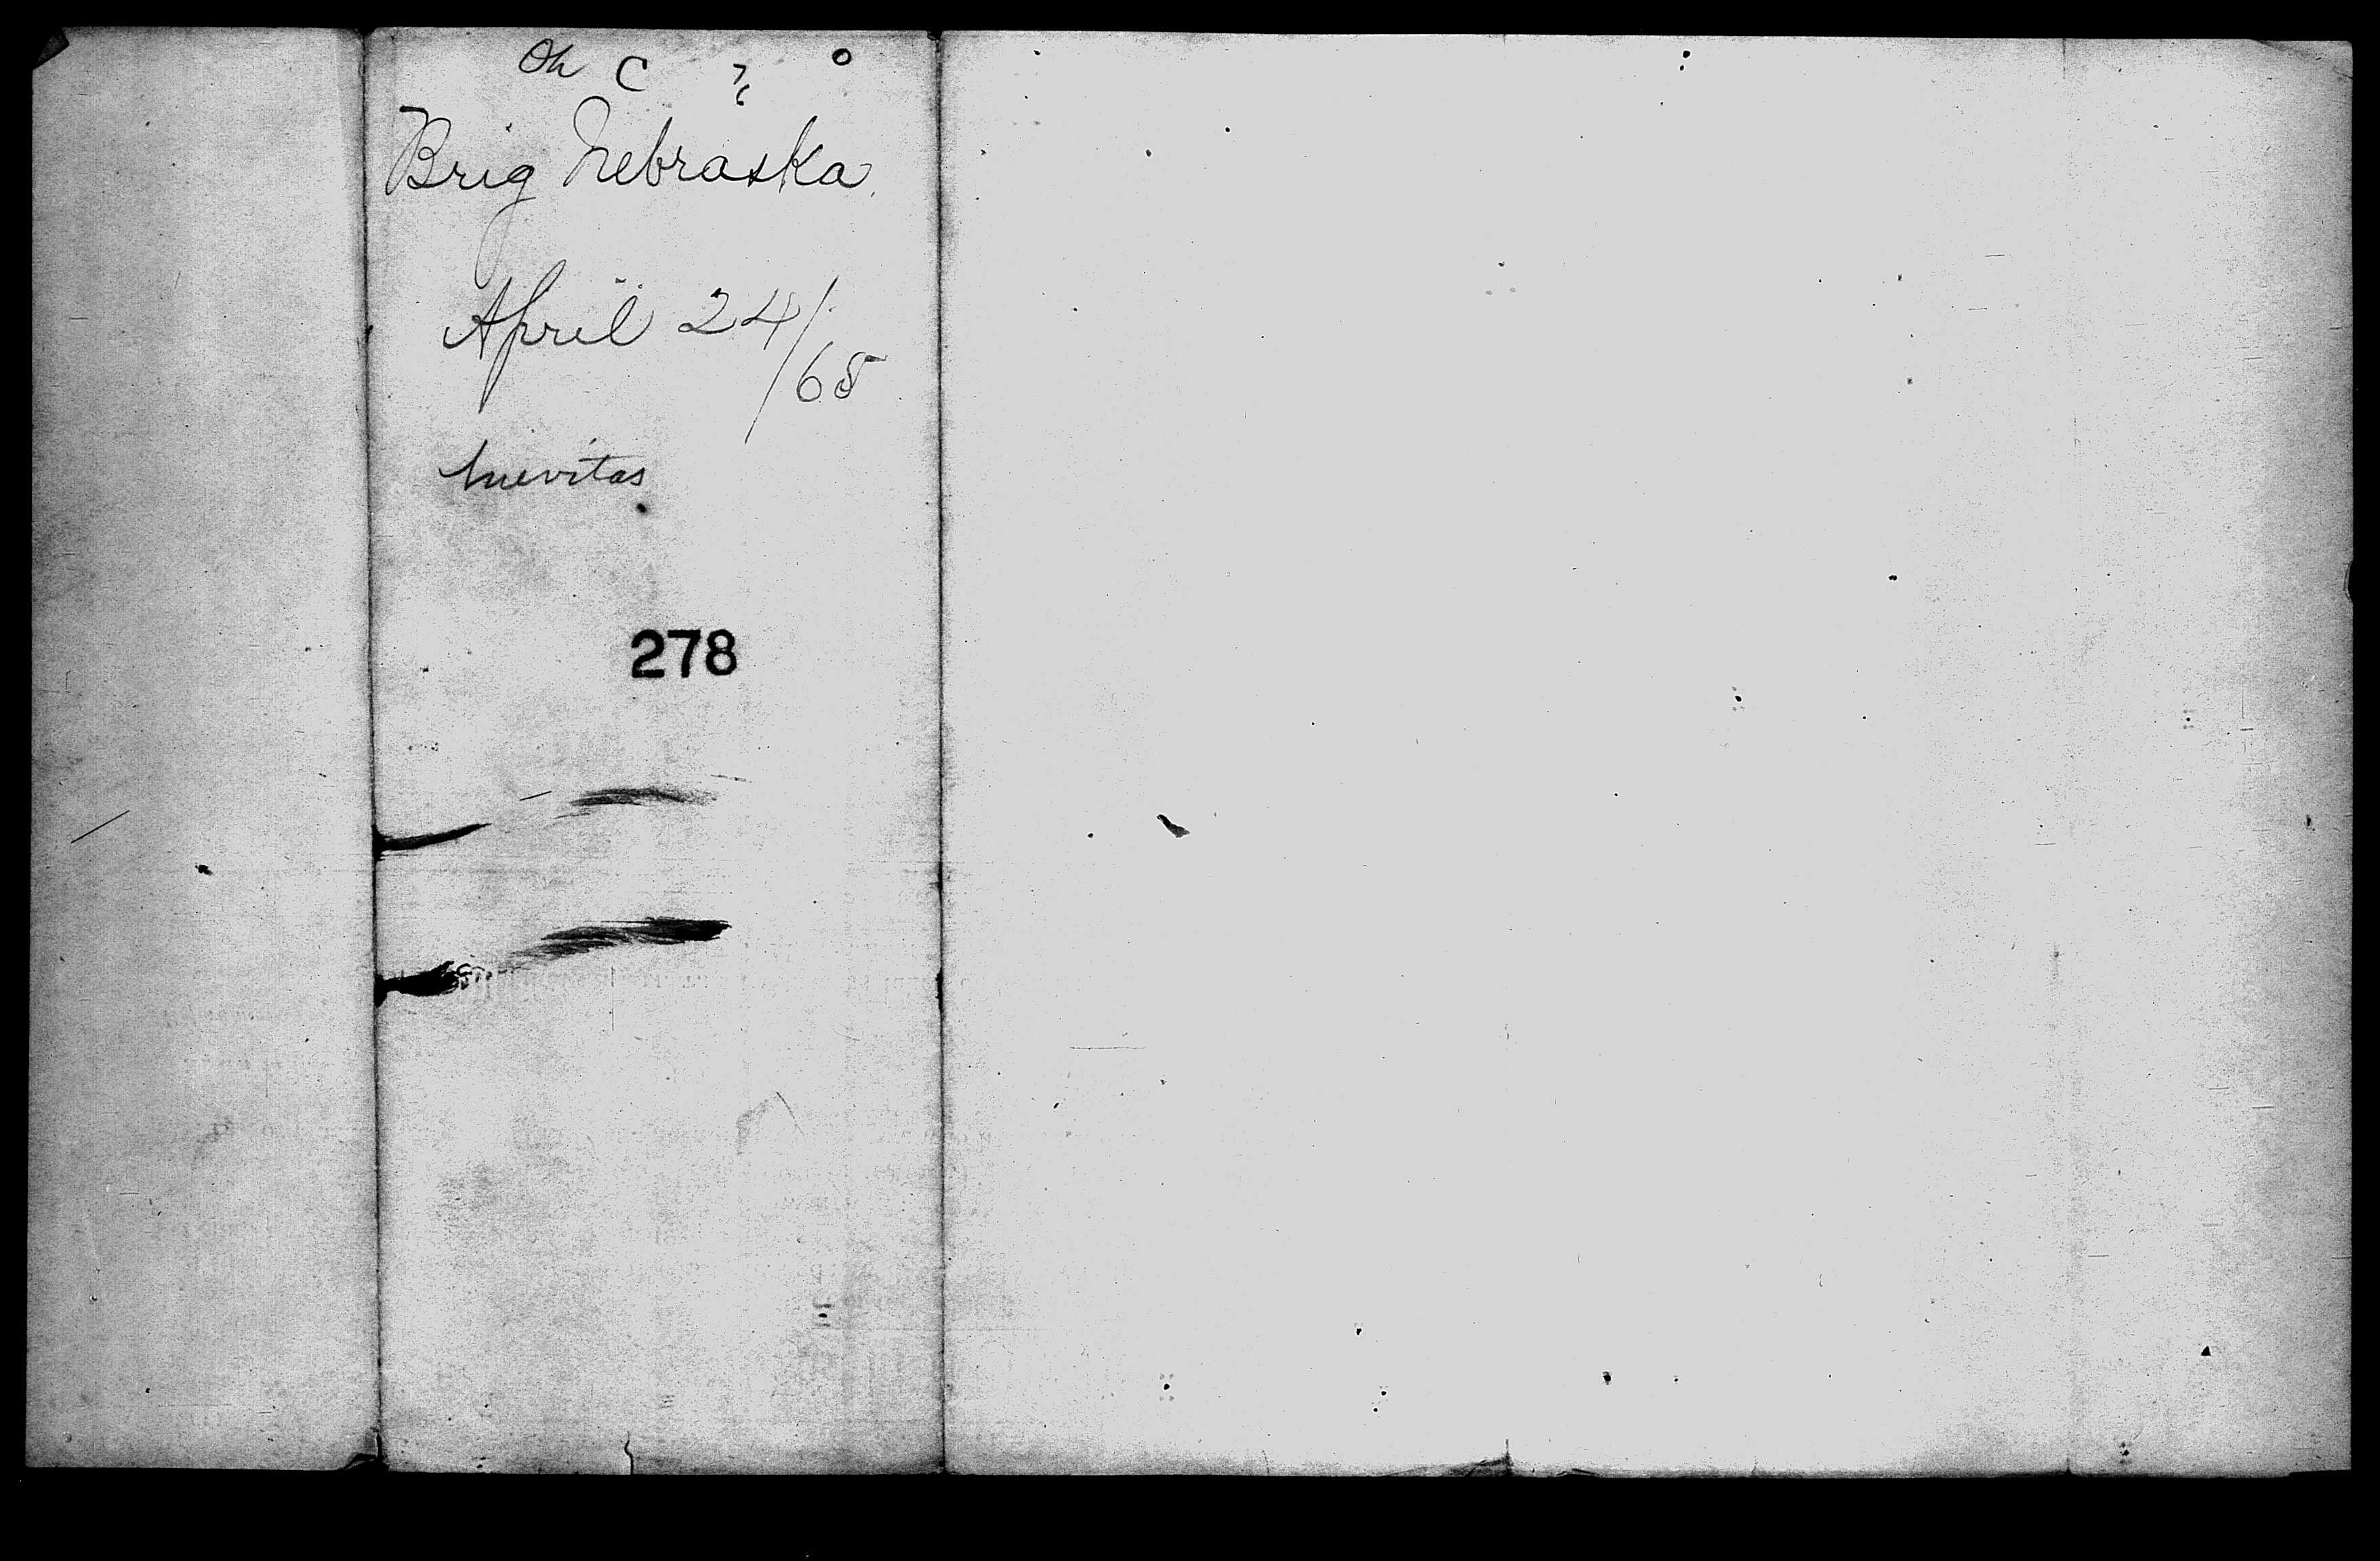 Ok C
Brig Nebraska
April 24/
/68
Nuevitas
278